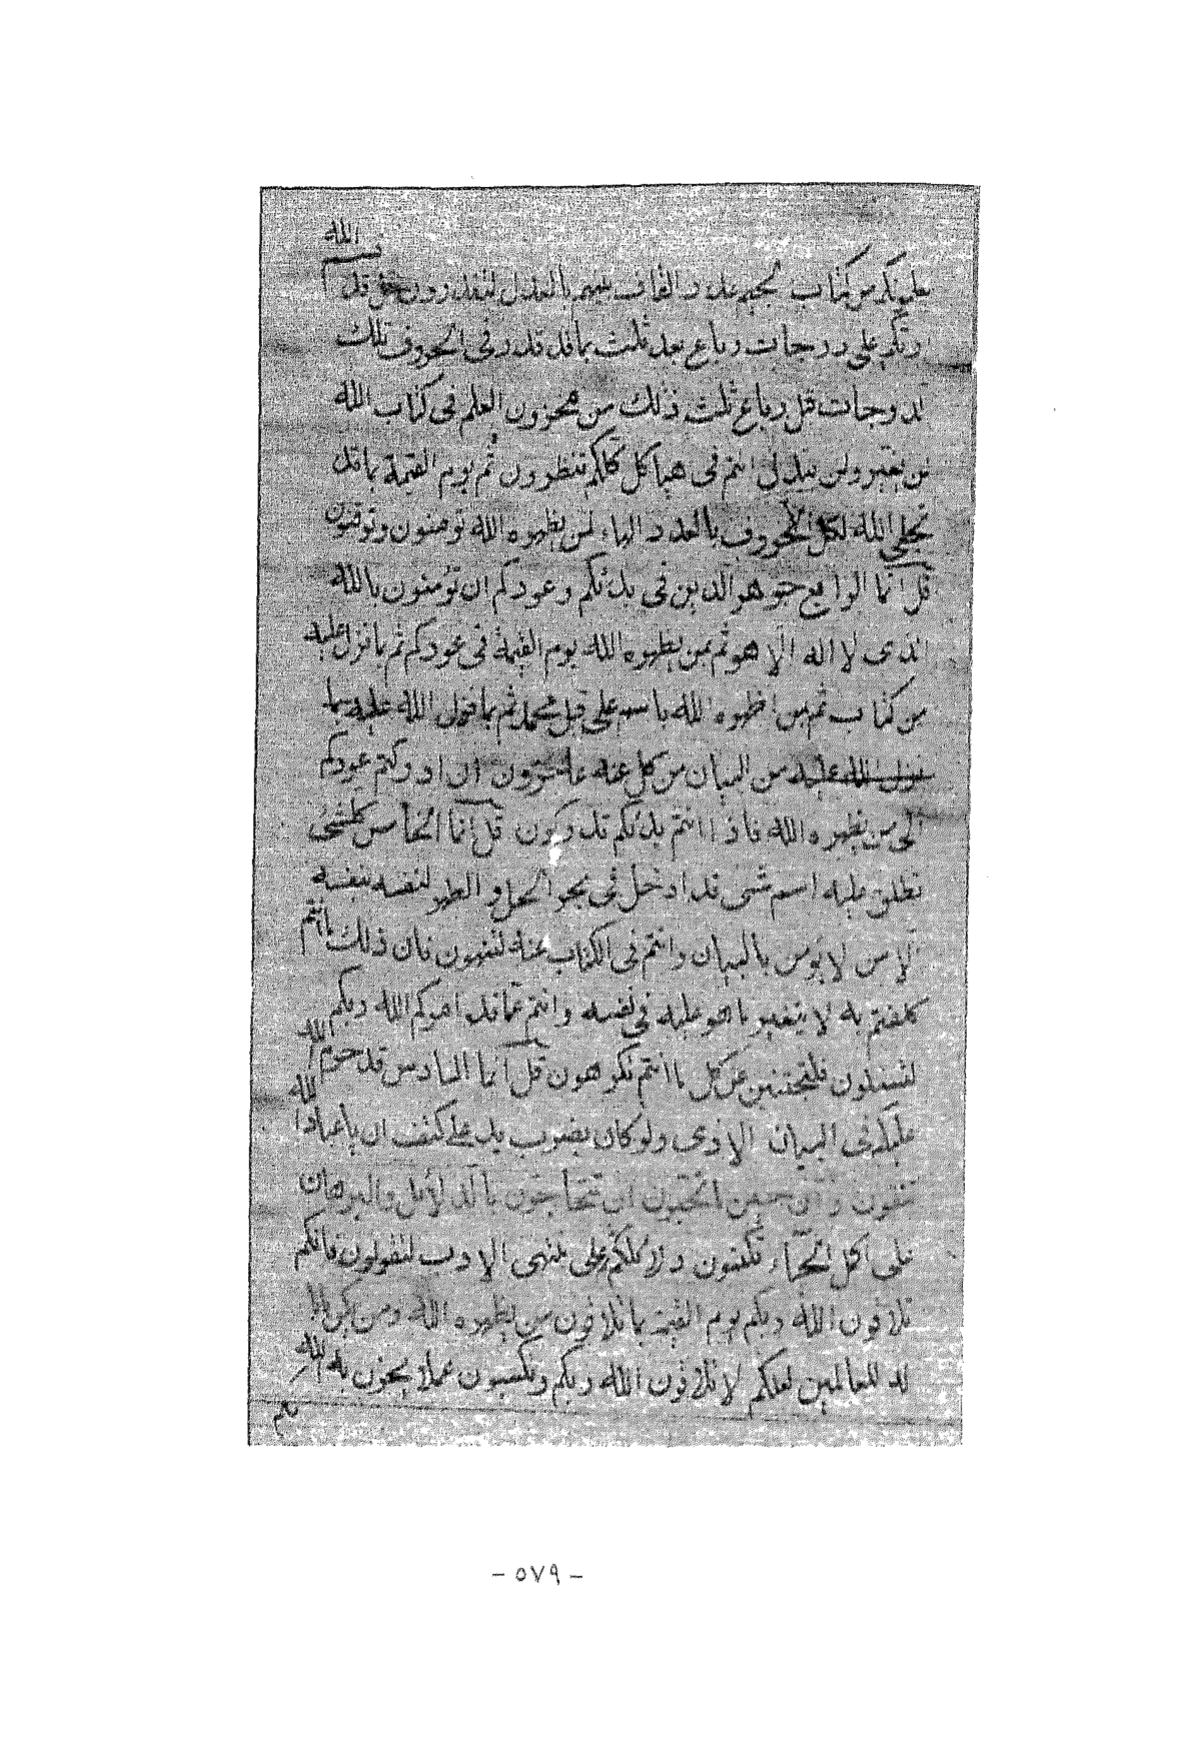 الله
عليكم من كتاب لجيه عدد القاف عليهم بالعدل لتقدرون حق قد
قسم
ربكم على درجات رباع بعد ثلث بما قد قدر في الحروف تلك
لدرجات قل رباع ثلث ذلك من مخزون العلم في كتاب الله
لن يغير ولن يبدل انتم في هياكل كلكم تنظرون ثم يوم القيمة بما قد
تجلى الله لكل الحروف بالعدد الهاء لمن يظهره الله تومنون وتوقنون
قل انما الرابع جوهر الدين في بدئكم وعودكم ان تؤمنون بالله
الذى لا اله الا هو ثم بمن يظهره الله يوم القيمة في عودكم ثم بما نزل عليه
من كتاب ثم من اظهره الله باسم على قبل محمد ثم بما نزل الله عليه
نزل الله عليه من البيان من كل عنه عاجزون ان ادركتم عودكم
الى من يظهره الله فاذا انتم بدئكم تدركون قل انما الخامس كلشئ
يطلق عليه اسم شئ قد ادخل في بحر الحل و الطهر لنفسه بنفسه
الا من لا يؤمن بالبيان وانتم في الكتاب عنه لتنهون فان ذلك ما انتم
كلفتم به لا يتغير ما هو عليه في نفسه وانتم عما قد امركم الله ربكم
لتسئلون فلتجتنبن عن كل ما انتم تكرهون قل انما السادس قد حرم الله
عليكم في البيان الاذى ولو كان بضرب يد على كتف ان يا عباد الله
تتقون وان حين ما تحبون ان تتحاجون بالدلائل والبرهان
على اكل الحياء تكتبون ودلائلكم على منتهى الادب لتقولون فانكم
تلاقون الله ربكم يوم القيمة بما تلاقون من يظهره الله ومن
للعالمين لعلكم لا تلاقون الله ربكم وتكسبون عملا يحزن به الله
- ٥٧٩ -